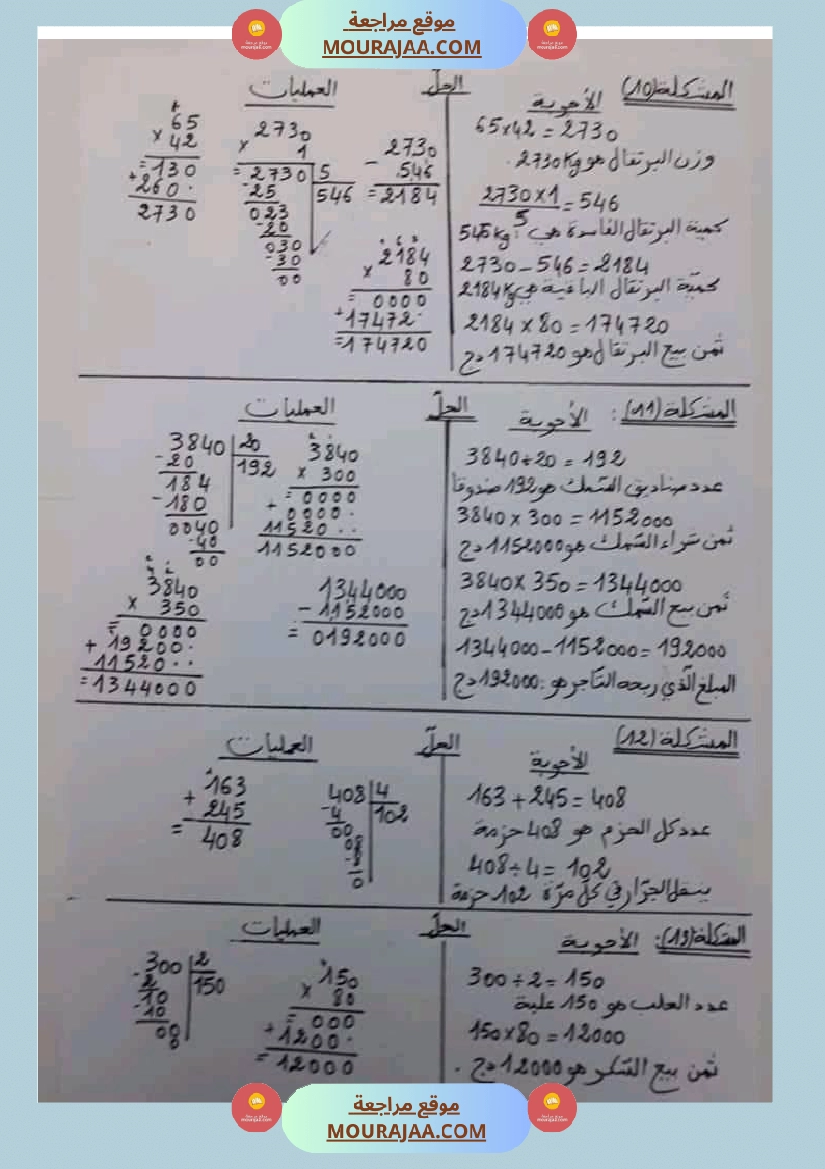 موقع مراجعة
MOURAJAA.COM
المشكلة (10) الحلّ
الأجوبة العمليات
65×42 = 2730
وزن البرتقال هو 2730Kg.
2730×1 = 546
5
كمية البرتقال الفاسدة هي: 546Kg
2730 - 546 = 2184
كميّة البرتقال الباقية هي 2184Kg
2184 × 80 = 174720
ثمن بيع البرتقال هو 174720 دج
65
× 42
= 130
+ 260.
2730
2730
× 1
= 2730 5
- 25 546
023
- 20
030
- 30
00
2730
- 546
= 2184
2184
× 80
= 0000
+ 17472.
= 174720
المشكلة (11): الحلّ
الأجوبة العمليات
3840 ÷ 20 = 192
عدد صناديق السّمك هو 192 صندوقا
3840 × 300 = 1152000
ثمن شراء السّمك هو 1152000 دج
3840 × 350 = 1344000
ثمن بيع السّمك هو 1344000 دج
1344000 - 1152000 = 192000
المبلغ الّذي ربحه التّاجر هو: 192000 دج
3840 20
- 20 192
184
- 180
0040
- 40
00
3840
× 300
= 0000
+ 0000.
11520..
1152000
3840
× 350
= 0000
+ 19200.
11520..
= 1344000
1344000
- 1152000
= 0192000
المشكلة (12) الحلّ
الأجوبة العمليات
163 + 245 = 408
عدد كل الحزم هو 408 حزمة
408 ÷ 4 = 102
ينقل الجرّار في كلّ مرّة 102 حزمة
163
+ 245
= 408
408 4
- 4 102
00
المشكلة (13): الحلّ
الأجوبة العمليات
300 ÷ 2 = 150
عدد العلب هو 150 علبة
150×80 = 12000
ثمن بيع السّكر هو 12000 دج.
300 2
- 2 150
10
- 10
00
150
× 80
= 000
+ 1200.
= 12000
موقع مراجعة
MOURAJAA.COM